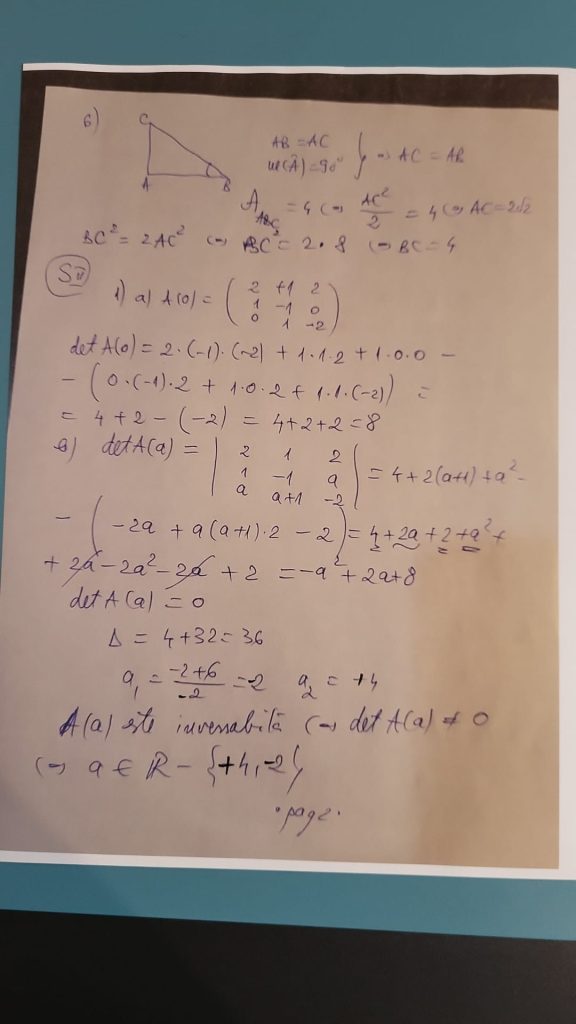 6)
C
A B
AB = AC
m(Â) = 90° } => AC = AB
A ABC = 4 (=> AC²/2 = 4 (=> AC = 2√2
BC² = 2AC² (=> BC² = 2 • 8 (=> BC = 4
S II
1) a) A(0) = ( 2 +1 2
1 -1 0
0 1 -2 )
det A(0) = 2 • (-1) • (-2) + 1 • 1 • 2 + 1 • 0 • 0 -
- ( 0 • (-1) • 2 + 1 • 0 • 2 + 1 • 1 • (-2) ) =
= 4 + 2 - (-2) = 4 + 2 + 2 = 8
b) det A(a) = | 2 1 2
1 -1 a
a a+1 -2 | = 4 + 2(a+1) + a² -
- ( -2a + a(a+1) • 2 - 2 ) = 4 + 2a + 2 + a² +
+ 2a - 2a² - 2a + 2 = -a² + 2a + 8
det A(a) = 0
Δ = 4 + 32 = 36
a₁ = (-2+6)/(-2) = -2 a₂ = +4
A(a) este inversabilă (=> det A(a) ≠ 0
(=> a ∈ ℝ - {+4, -2}
• pag 2 •